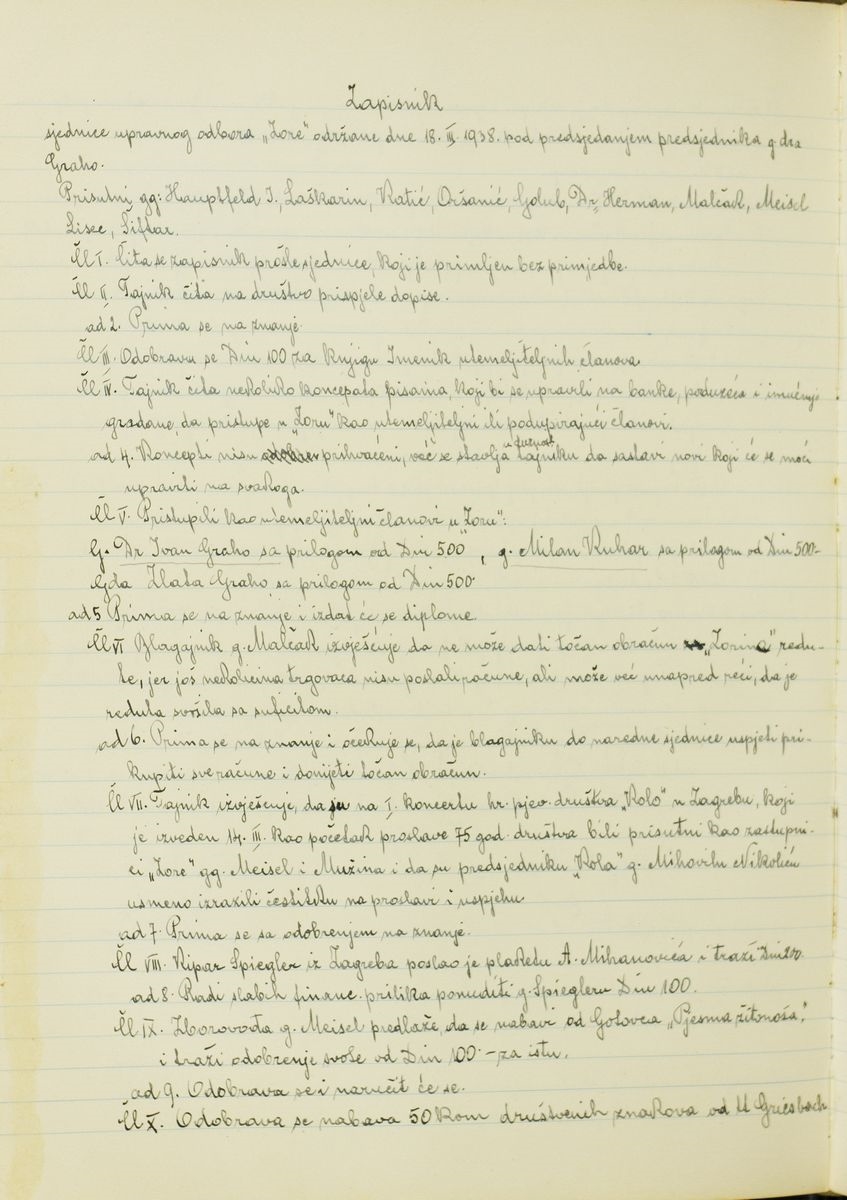 Zapisnik
sjednice upravnog odbora „Zore" održane dne 18. III. 1938. pod predsjedanjem predsjednika g. dra
Graho.
Prisutni gg: Hauptfeld I., Laškarin, Katić, Oršanić, Golub, Dr. Herman, Malčak, Meisel
Lisec, Šiftar.
Čl I. Čita se zapisnik prošle sjednice, koji je primljen bez primjedbe.
Čl II. Tajnik čita na društvo prispjele dopise.
ad 2. Prima se na znanje.
Čl III. Odobrava se Din 100 za knjigu Imenik utemeljiteljnih članova.
Čl IV. Tajnik čita nekoliko koncepata pisama, koji bi se upravili na banke, poduzeća i imućnije
građane, da pristupe u „Zoru" kao utemeljiteljni ili podupirajući članovi.
ad 4. Koncepti nisu prihvaćeni, već se stavlja u dužnost tajniku da sastavi novi koji će se moći
upraviti na svakoga.
Čl V. Pristupili kao utemeljiteljni članovi u „Zoru":
G. Dr Ivan Graho sa prilogom od Din 500, g. Milan Kuhar sa prilogom od Din 500-
Gđa Zlata Graho sa prilogom od Din 500.
ad 5 Prima se na znanje i izdat će se diplome.
Čl VI Blagajnik g. Malčak izvješćuje da ne može dati točan obračun „Zorine" redu-
te, jer još nekolicina trgovaca nisu poslali račune, ali može već unapred reći, da je
reduta svršila sa suficitom.
ad 6. Prima se na znanje i očekuje se, da je blagajniku do naredne sjednice uspjeti pri-
kupiti sve račune i donijeti točan obračun.
Čl VII. Tajnik izvješćuje, da su na I. koncertu hr. pjev. društva „Kolo" u Zagrebu, koji
je izveden 14. III. kao početak proslave 75 god. društva bili prisutni kao zastupni-
ci „Zore" gg. Meisel i Mužina i da su predsjedniku „Kola" g. Mihovilu Nikoliću
usmeno izrazili čestitku na proslavi i uspjehu
ad 7. Prima se sa odobrenjem na znanje.
Čl VIII. Kipar Spiegler iz Zagreba poslao je plaketu A. Mihanovića i traži Din 200.
ad 8. Radi slabih financ. prilika ponuditi g. Spiegleru Din 100.
Čl IX. Zborovođa g. Meisel predlaže, da se nabavi od Gotovca „Pjesma žitonoša,"
i traži odobrenje svote od Din 100.- za istu.
ad 9. Odobrava se i naručit će se.
Čl X. Odobrava se nabava 50 kom društvenih znakova od Griesbach